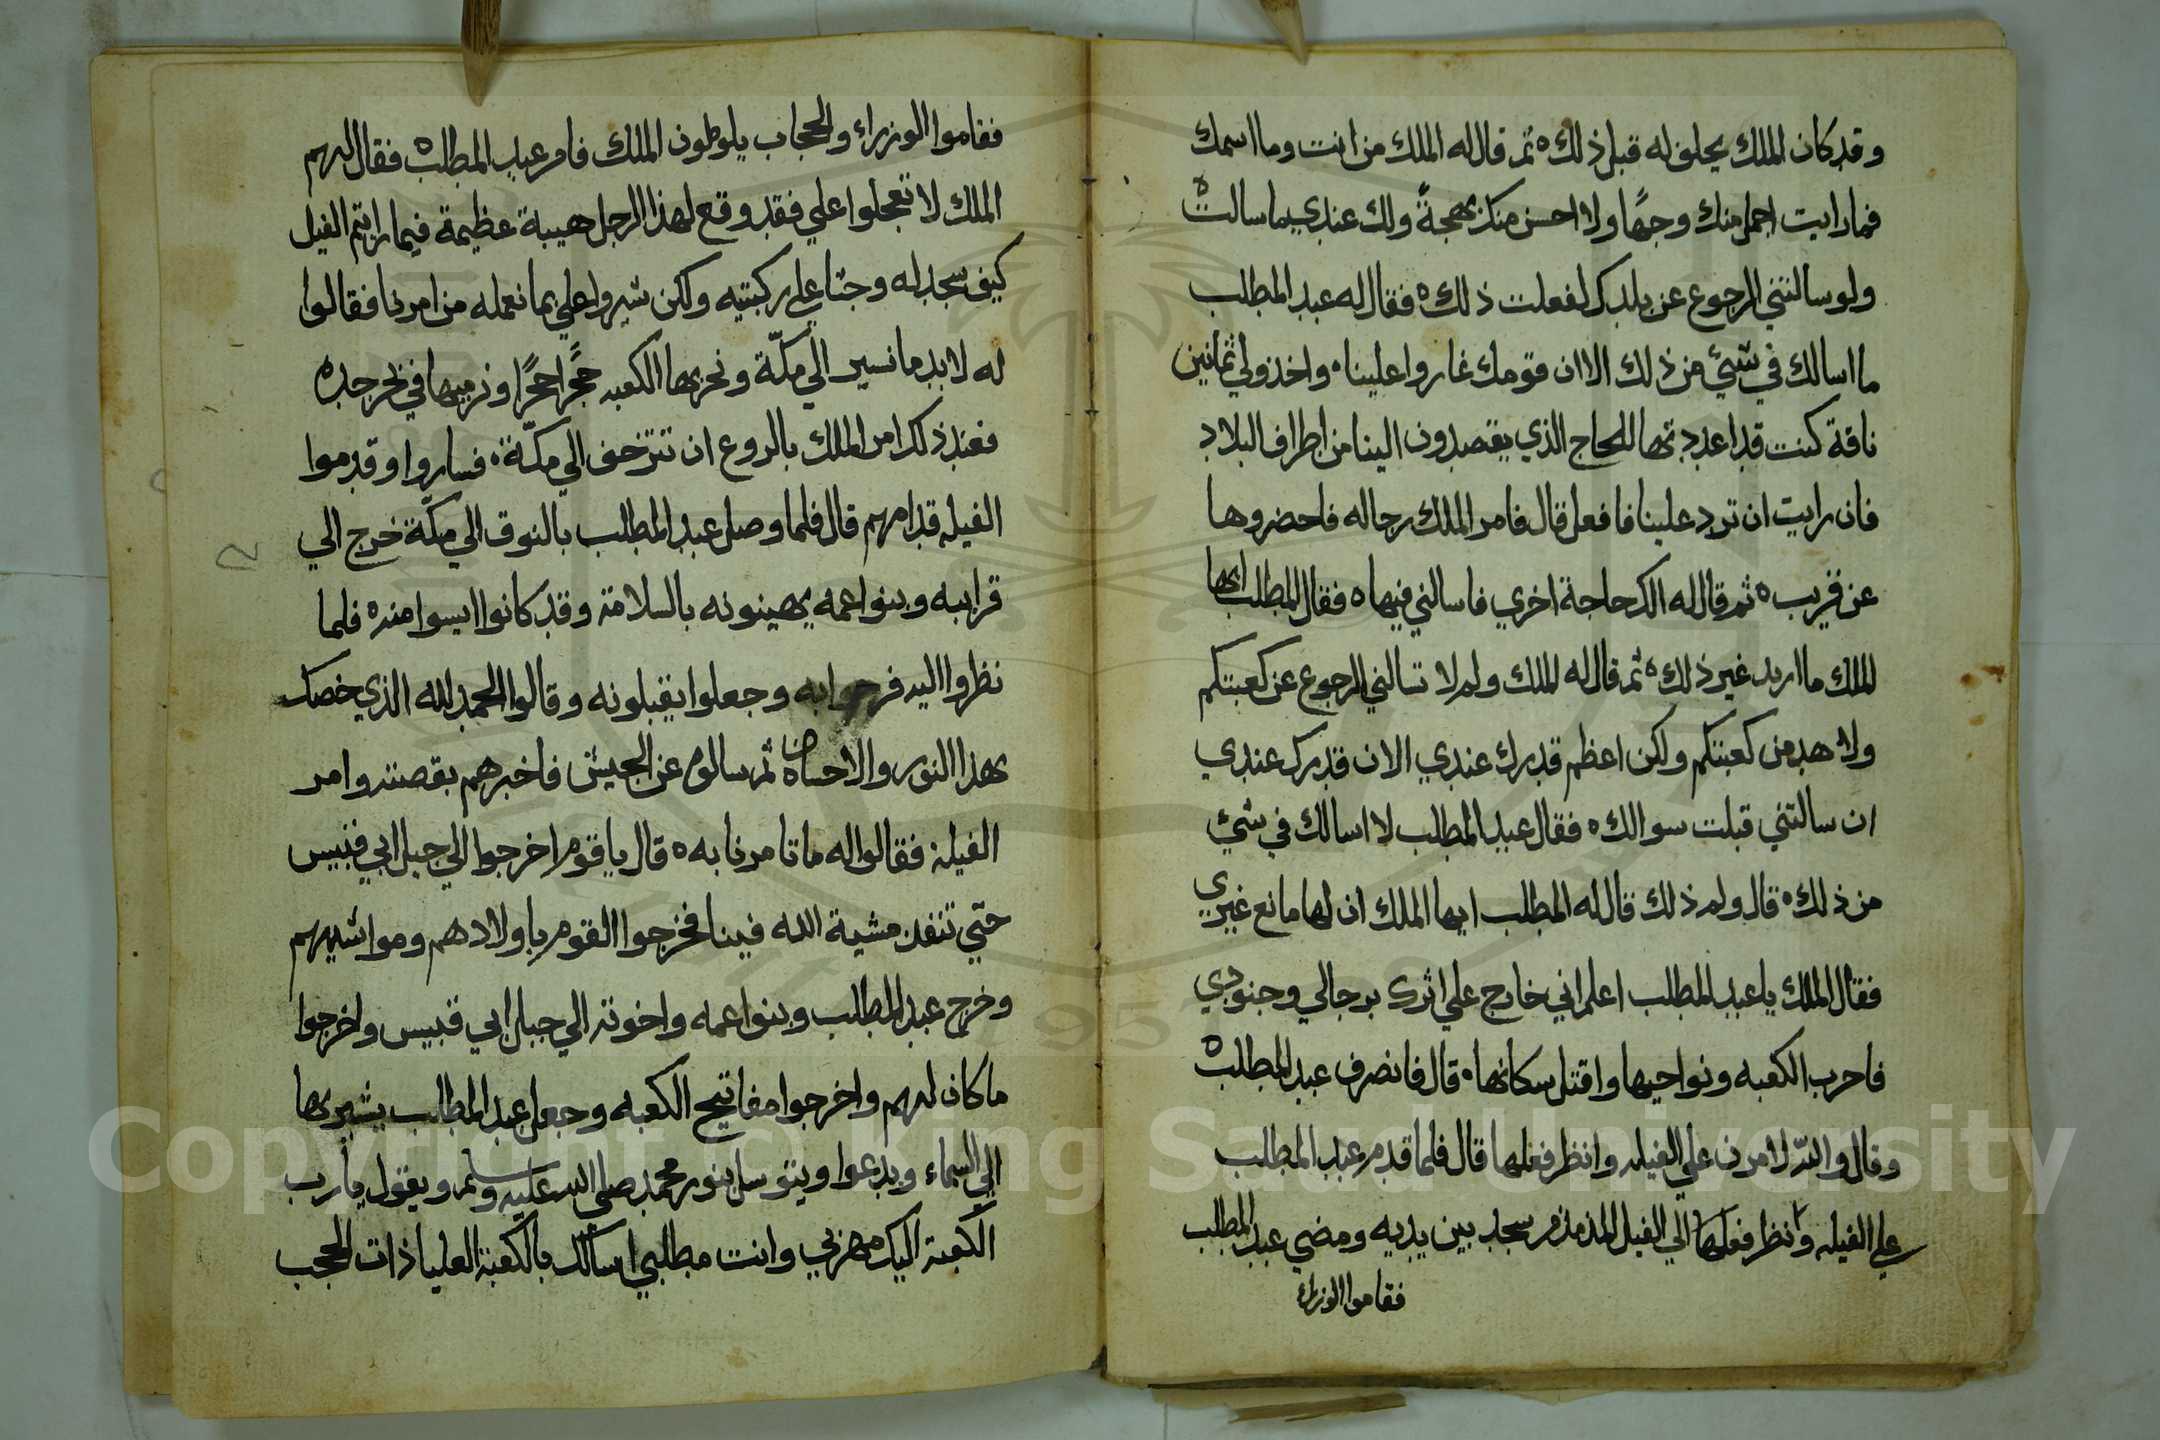 وقد كان الملك يحلق له قبل ذلك ه ثم قال له الملك من انت وما اسمك
فما رايت اجمل منك وجهًا ولا احسن منك بهجةً ولك عندي بما سالت ه
ولو سالتني الرجوع عن بلدك لفعلت ذلك ه فقال له عبد المطلب
ما اسالك في شيْ من ذلك الا ان قومك غاروا علينا ه واخذو لي ثمانين
ناقة كنت قد اعددتها للحاج الذي يقصدون الينا من اطراف البلاد
فان رايت ان ترد علينا فافعل قال فامر الملك رجاله فاحضروها
عن قريب ه ثم قال له الك حاجة اخري فاسالني فيها ه فقال المطلب ايها
الملك ما اريد غير ذلك ه ثم قال له الملك ولم لا تسالني الرجوع عن كعبتكم
ولا هدمن كعبتكم ولكن اعظم قدرك عندي الان قدرك عندي
ان سالتني قبلت سوالك ه فقال عبد المطلب لا اسالك في شيْ
من ذلك ه قال ولم ذلك قال له المطلب ايها الملك ان لها مانع غيري
فقال الملك يا عبد المطلب اعلم اني خارج علي اثرك برجالي وجنودي
فاحرب الكعبه ونواحيها واقتل سكانها ه قال فانصرف عبد المطلب ه
وقال والله لامرن علي الفيله وانظر فعلها قال فلما قدم عبد المطلب
علي الفيله وانظر فعلها الي الفيل المذمذم سجد بين يديه ومضي عبد المطلب
فقاموا الوزراء
فقاموا الوزراء والحجاب يلوطون الملك فامر عبد المطلب ه فقال لهم
الملك لا تعجلوا علي فقد وقع لهذا الرجل هيبة عظيمة فيما رايتم الفيل
كيف سجد له وجثا علي ركبتيه ولكن شيروا علي بما نعمله من امرنا فقالوا
له لا بد ما نسير الي مكّة ونخربها الكعبه حجرًا حجرًا ونرميها في بحر جده
فعند ذلك امر الملك بالروع ان تتزخف الي مكّة ه فساروا وقدموا
الفيله قدامهم قال فلما وصل عبد المطلب بالنوق الي مكّة خرج الي
قرابيه وبنوا عمه يهينونه بالسلامة وقد كانوا ايسوا منه ه فلما
نظروا اليه فرحوا به وجعلوا يقبلونه وقالوا الحمد لله الذي خصك
بهذا النور والاحسان ه ثم سالوه عن الجيش فاخبرهم بقصته وامر
الفيلة فقالوا له ما تامرنا به ه قال يا قوم اخرجوا الي جبل ابي قبيس
حتي تنفد مشية الله فينا فخرجوا القوم باولادهم ومواشيهم
وخرج عبد المطلب وبنوا عمه واخوته الي جبل ابي قبيس واخرجوا
ما كان لهم واخرجوا مفاتيح الكعبه وجعل عبد المطلب يشير بها
الي السماء ويدعوا ويتوسل بنور محمد صلي الله عليه وسلم ويقول يا رب
الكعبة اليك مهربي وانت مطلبي اسالك بالكعبة العليا ذات الحجب
Copyright © King Saud University
1957